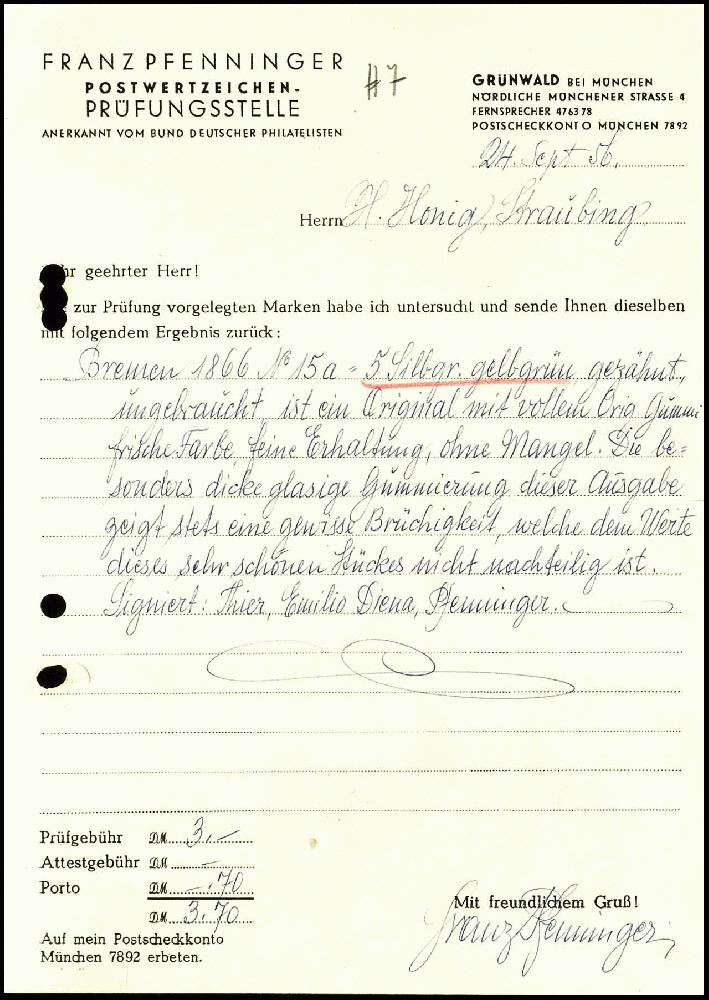 FRANZ PFENNINGER
POSTWERTZEICHEN-
PRÜFUNGSSTELLE
ANERKANNT VOM BUND DEUTSCHER PHILATELISTEN
#7
GRÜNWALD BEI MÜNCHEN
NÖRDLICHE MÜNCHENER STRASSE 4
FERNSPRECHER 476378
POSTSCHECKKONTO MÜNCHEN 7892
24. Sept 56.
Herrn H. Honig, Straubing
hr geehrter Herr!
zur Prüfung vorgelegten Marken habe ich untersucht und sende Ihnen dieselben
mit folgendem Ergebnis zurück:
Bremen 1866 No 15a = 5 Silbgr. gelbgrün gezähnt,
ungebraucht ist ein Original mit vollem Orig Gummi
frische Farbe, feine Erhaltung, ohne Mangel. Die be=
sonders dicke glasige Gummierung dieser Ausgabe
zeigt stets eine gewisse Brüchigkeit, welche dem Werte
dieses sehr schönen Stückes nicht nachteilig ist.
Signiert: Thier, Emilio Diena, Pfenninger.
Prüfgebühr DM 3.–
Attestgebühr DM –
Porto DM –.70
DM 3.70
Auf mein Postscheckkonto
München 7892 erbeten.
Mit freundlichem Gruß!
Franz Pfenninger